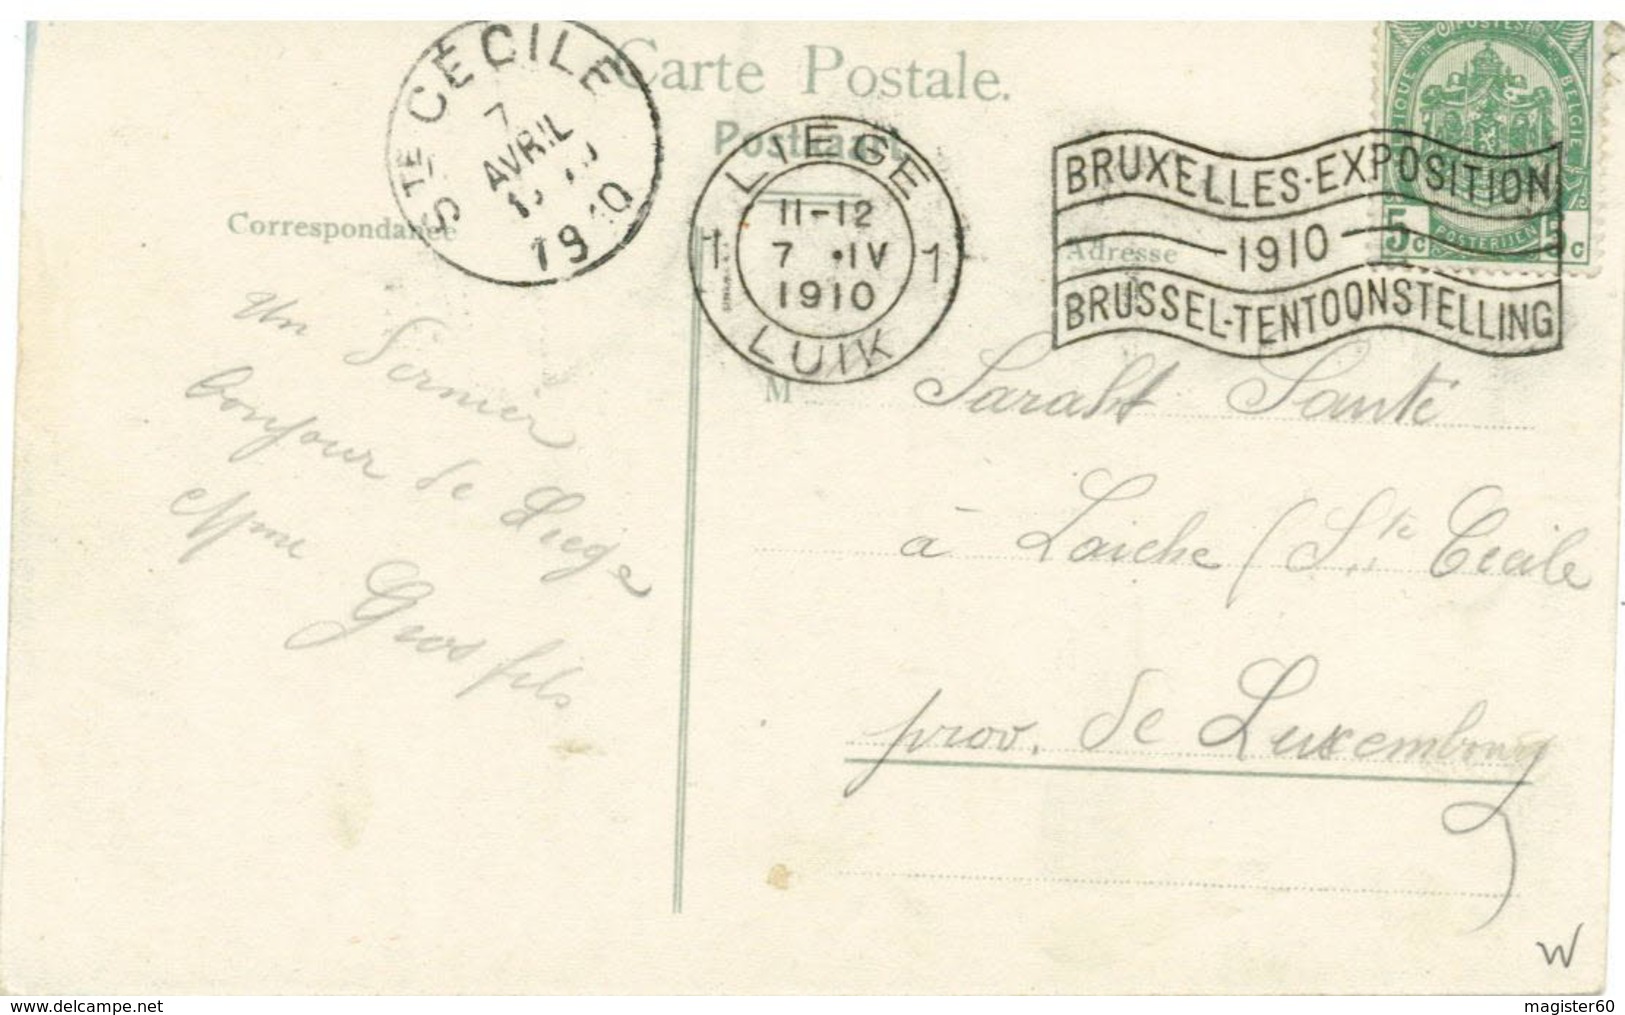 Carte Postale.
Postkaart
STE CECILE
7
AVRIL
1910
LIEGE
11-12
7 •IV
1910
1 1
LUIK
BRUXELLES-EXPOSITION
1910
BRUSSEL-TENTOONSTELLING
POSTES
BELGIQUE
BELGIE
5c 5c
POSTERIJEN
Correspondance
Adresse
un dernier
bonjour de Liege
Mme
Gros fils
M
Sarah Santé
à Laiche (Ste Cecile
prov. de Luxembourg
)
W
www.delcampe.net
magister60